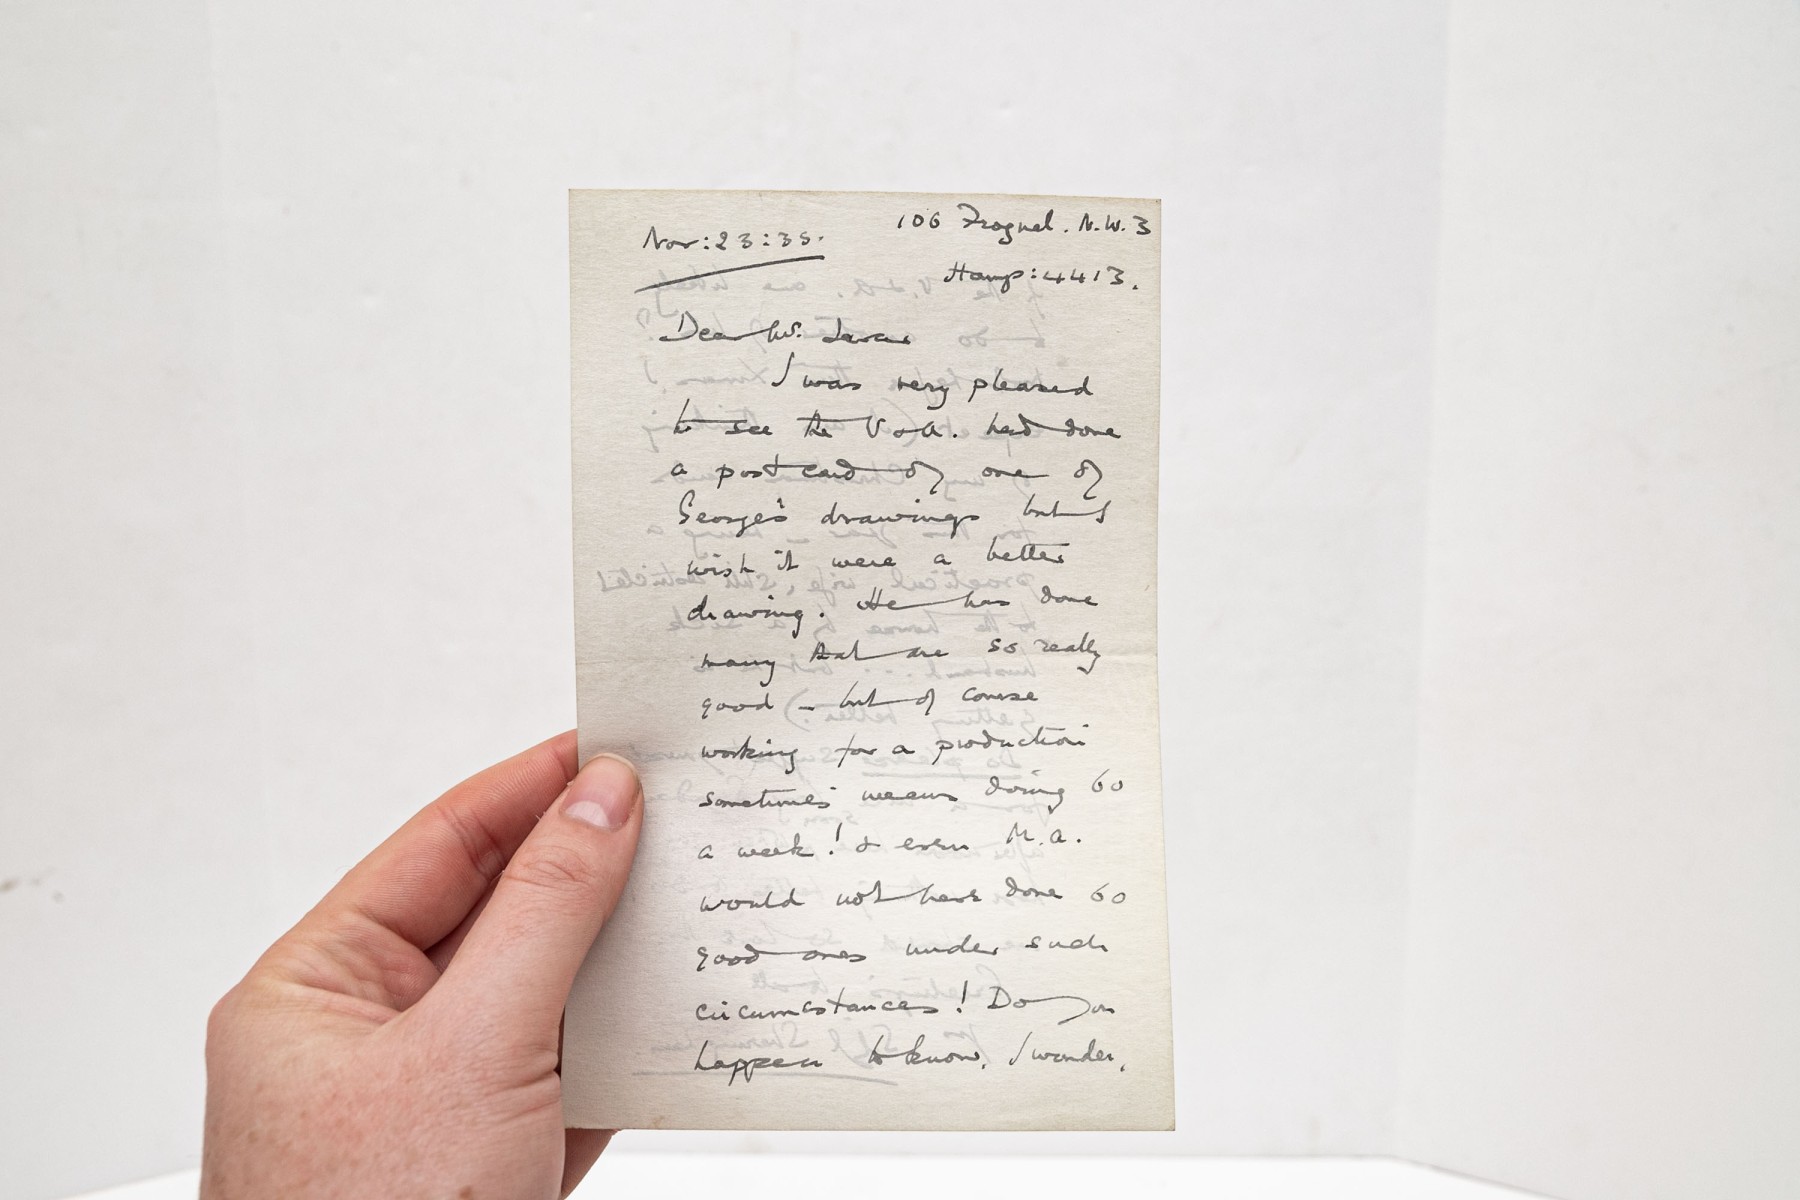 Nov: 23: 35.
106 Frognal. N.W. 3
Hamp: 4413.
Dear Mr.
I was very pleased
to see the V & A. had done
a postcard of one of
George's drawings but I
wish it were a better
drawing. He has done
many that are so really
good – but of course
working for a production
sometimes means doing 60
a week! & even M.A.
would not have done 60
good ones under such
circumstances! Do you
happen to know, I wonder,